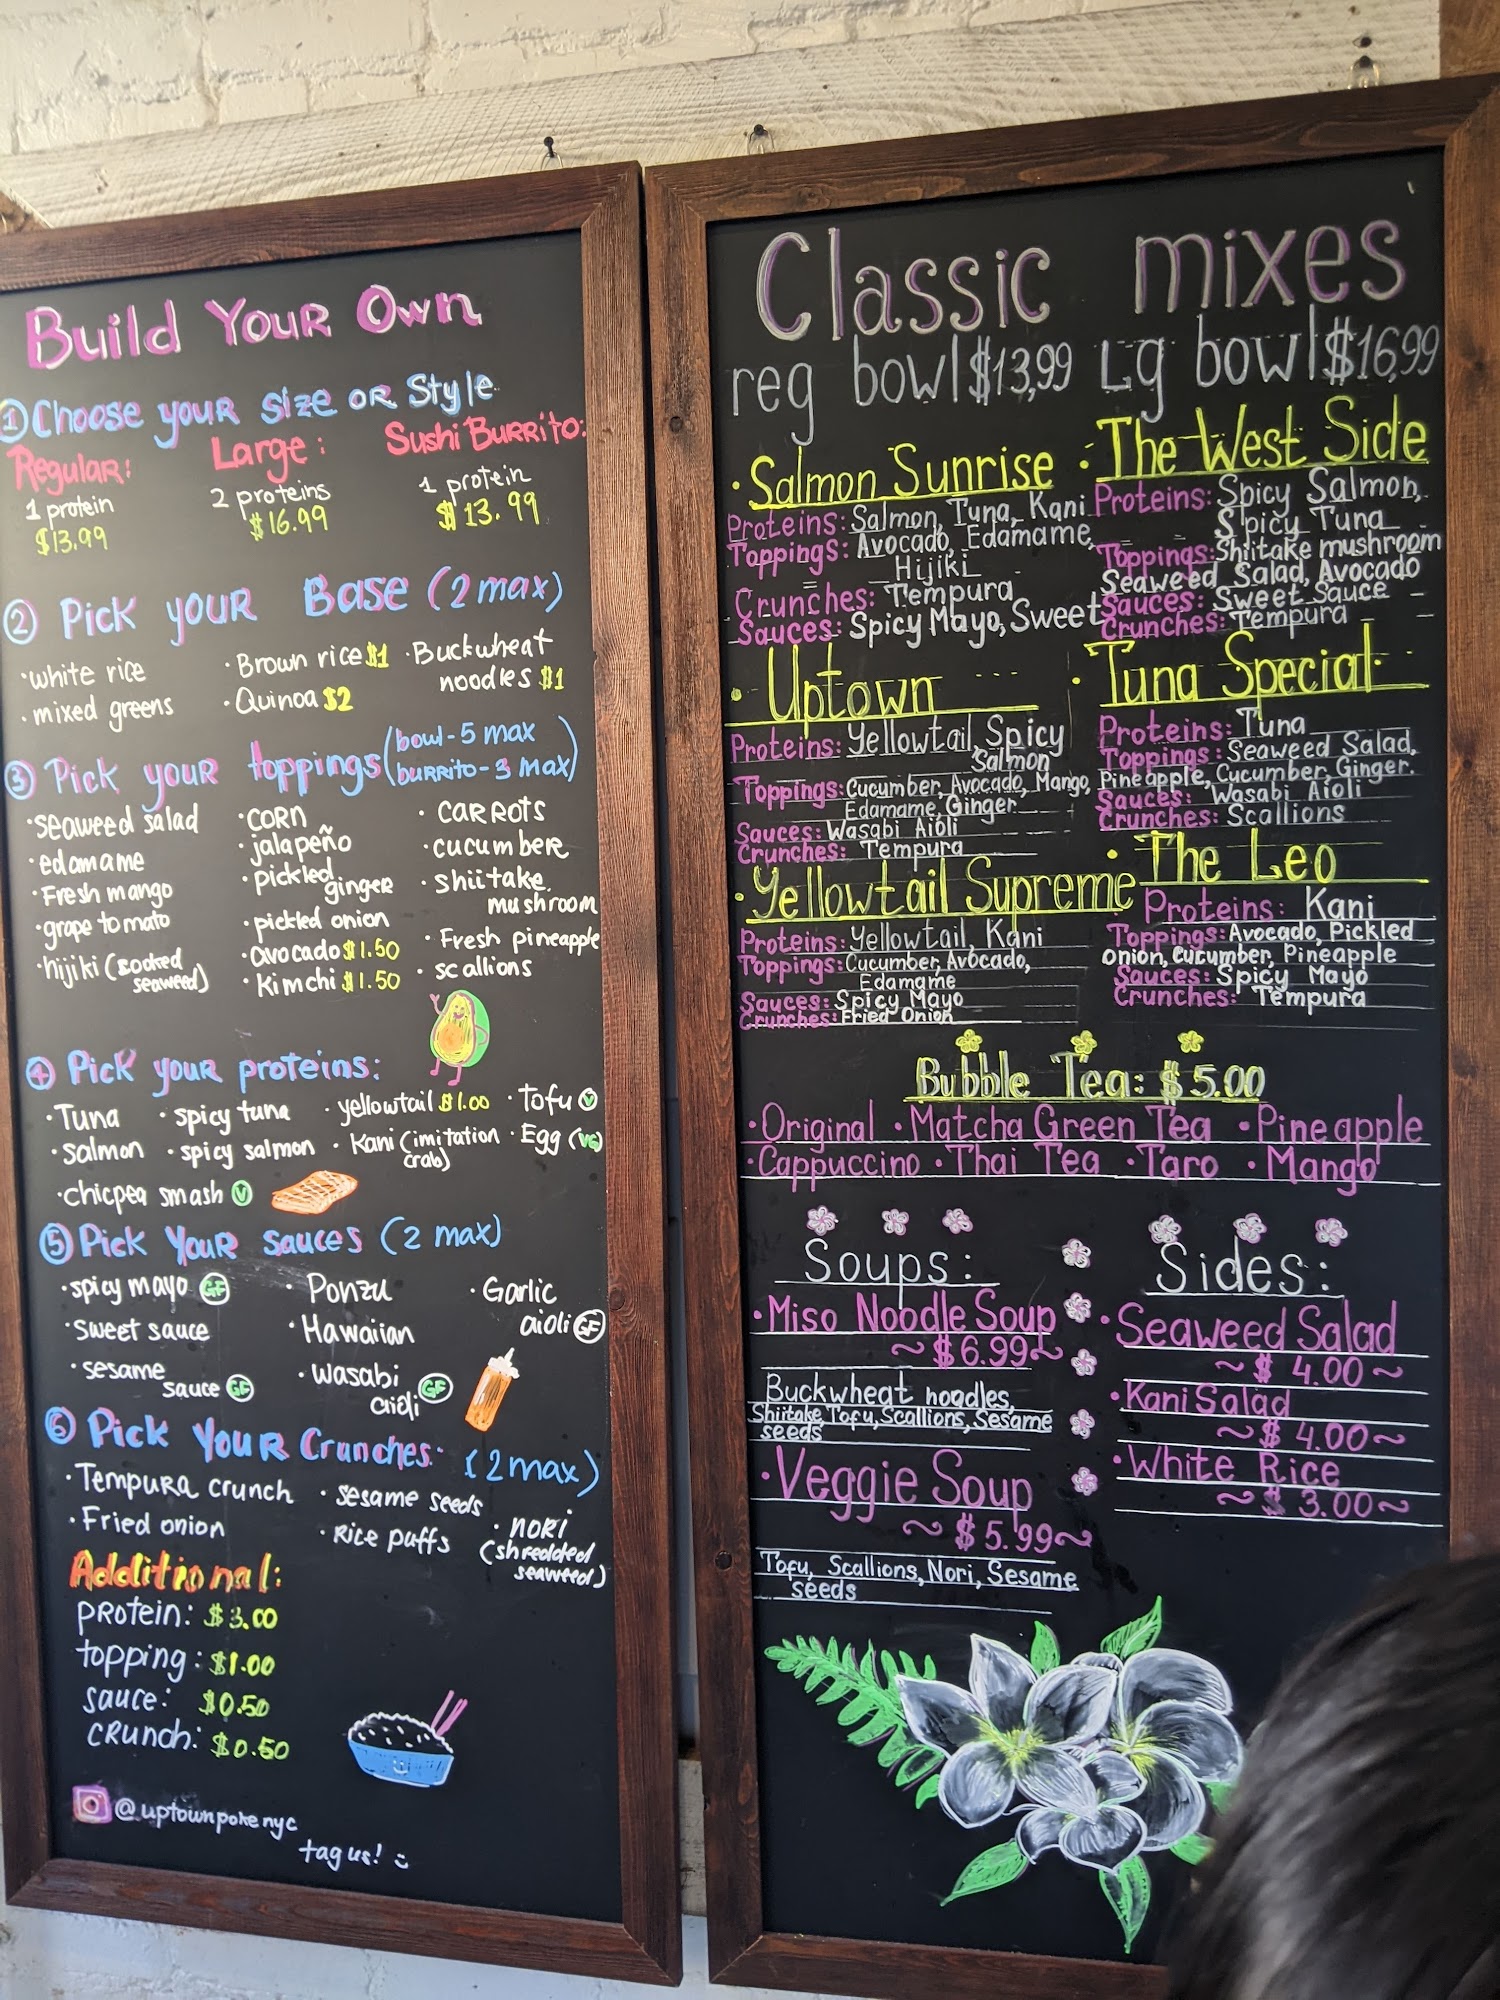 Build Your Own
① Choose your size or Style
Regular: Large: Sushi Burrito:
1 protein 2 proteins 1 protein
$13.99 $16.99 $13.99
② Pick your Base (2 max)
·white rice ·Brown rice $1 ·Buckwheat
noodles $1
·mixed greens ·Quinoa $2
③ Pick your toppings (bowl-5 max
burrito-3 max)
·seaweed salad ·corn ·carrots
·edamame ·jalapeño ·cucumber
·Fresh mango ·pickled ginger ·shiitake mushroom
·grape tomato ·pickled onion ·Fresh pineapple
·hijiki (sooked seaweed) ·avocado $1.50 ·scallions
·kimchi $1.50
④ Pick your proteins:
·Tuna ·spicy tuna ·yellowtail $1.00 ·Tofu V
·salmon ·spicy salmon ·Kani (imitation crab) ·Egg (VG)
·chicpea smash V
⑤ Pick your sauces (2 max)
·spicy mayo GF ·Ponzu ·Garlic
aioli GF
·sweet sauce ·Hawaiian
·sesame
sauce GF ·wasabi
aioli GF
⑥ Pick your Crunches: (2 max)
·Tempura crunch ·sesame seeds ·nori
(shredded
seaweed)
·Fried onion ·Rice puffs
Additional:
protein: $3.00
topping: $1.00
sauce: $0.50
crunch: $0.50
@uptownpokenyc
tag us!
Classic mixes
reg bowl $13,99 Lg bowl $16,99
·Salmon Sunrise
Proteins: Salmon, Tuna, Kani
Toppings: Avocado, Edamame,
Hijiki
Crunches: Tempura
Sauces: Spicy Mayo, Sweet
·The West Side
Proteins: Spicy Salmon,
Spicy Tuna
Toppings: Shiitake mushroom
Seaweed Salad, Avocado
Sauces: Sweet Sauce
Crunches: Tempura
·Uptown
Proteins: Yellowtail Spicy
Salmon
Toppings: Cucumber, Avocado, Mango,
Edamame, Ginger
Sauces: Wasabi Aioli
Crunches: Tempura
·Tuna Special
Proteins: Tuna
Toppings: Seaweed Salad,
Pineapple, Cucumber, Ginger.
Sauces: Wasabi Aioli
Crunches: Scallions
·Yellowtail Supreme
Proteins: Yellowtail, Kani
Toppings: Cucumber, Avocado,
Edamame
Sauces: Spicy Mayo
Crunches: Fried Onion
·The Leo
Proteins: Kani
Toppings: Avocado, Pickled
onion, Cucumber, Pineapple
Sauces: Spicy Mayo
Crunches: Tempura
Bubble Tea: $5.00
·Original ·Matcha Green Tea ·Pineapple
·Cappuccino ·Thai Tea ·Taro ·Mango
Soups:
·Miso Noodle Soup
~ $6.99 ~
Buckwheat noodles,
Shiitake, Tofu, Scallions, Sesame
seeds
·Veggie Soup
~ $5.99 ~
Tofu, Scallions, Nori, Sesame
seeds
Sides:
·Seaweed Salad
~ $4.00 ~
·Kani Salad
~ $4.00 ~
·White Rice
~ $3.00 ~